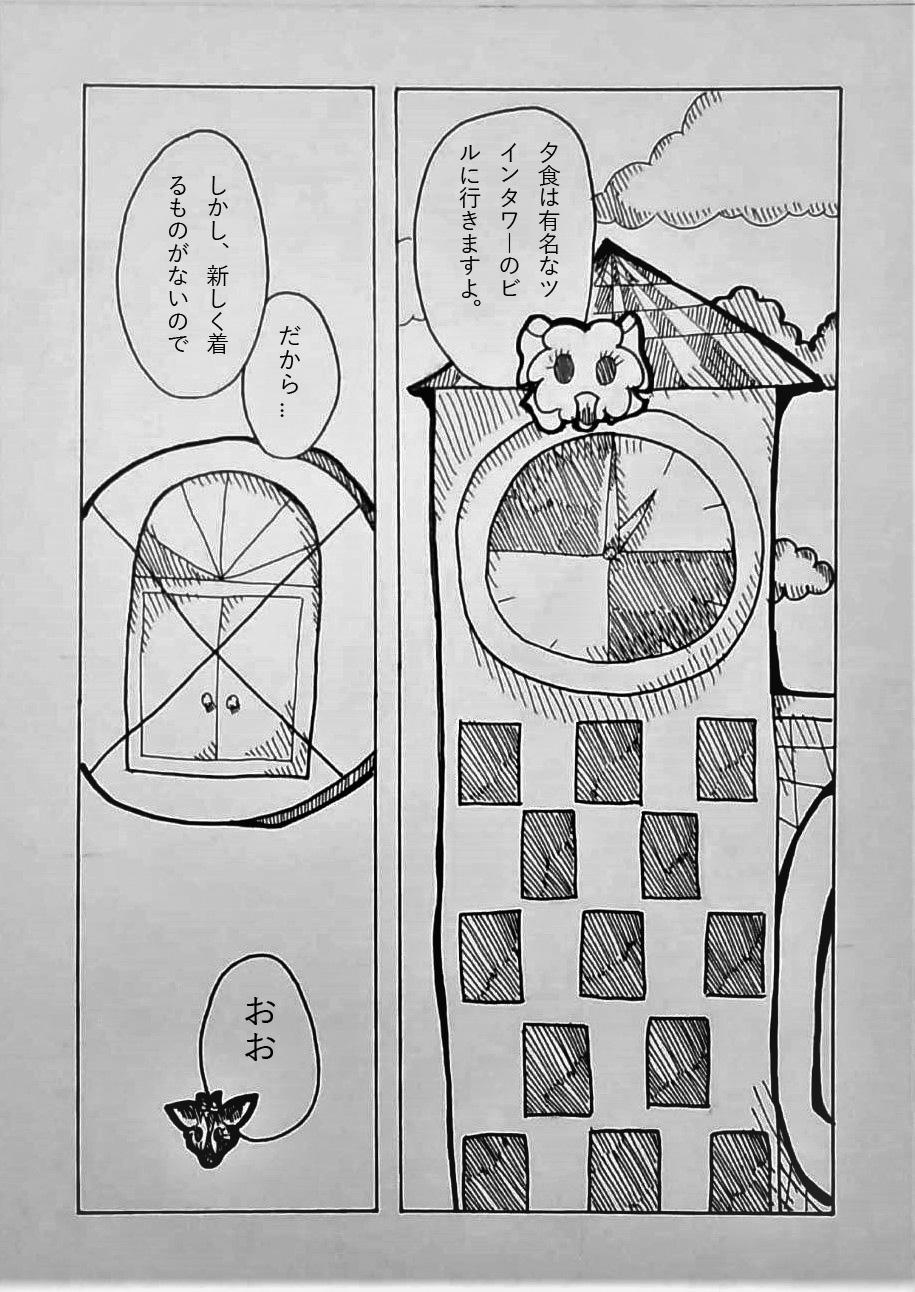 夕食は有名なツ
インタワーのビ
ルに行きますよ。
だから…
しかし、新しく着
るものがないので
おお